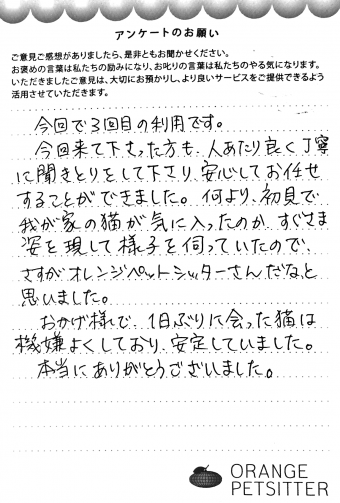 アンケートのお願い
ご意見ご感想がありましたら、是非ともお聞かせください。
お褒めの言葉は私たちの励みになり、お叱りの言葉は私たちのやる気になります。
いただきましたご意見は、大切にお預かりし、より良いサービスをご提供できるよう
活用させていただきます。
今回で3回目の利用です。
今回来て下さった方も、人あたり良く丁寧
に聞きとりをして下さり、安心してお任せ
することができました。何より、初見で
我が家の猫が気に入ったのか、すぐさま
姿を現して様子を伺っていたので、
さすがオレンジペットシッターさんだなと
思いました。
おかげ様で、1日ぶりに会った猫は
機嫌よくしており、安定していました。
本当にありがとうございました。
ORANGE
PETSITTER